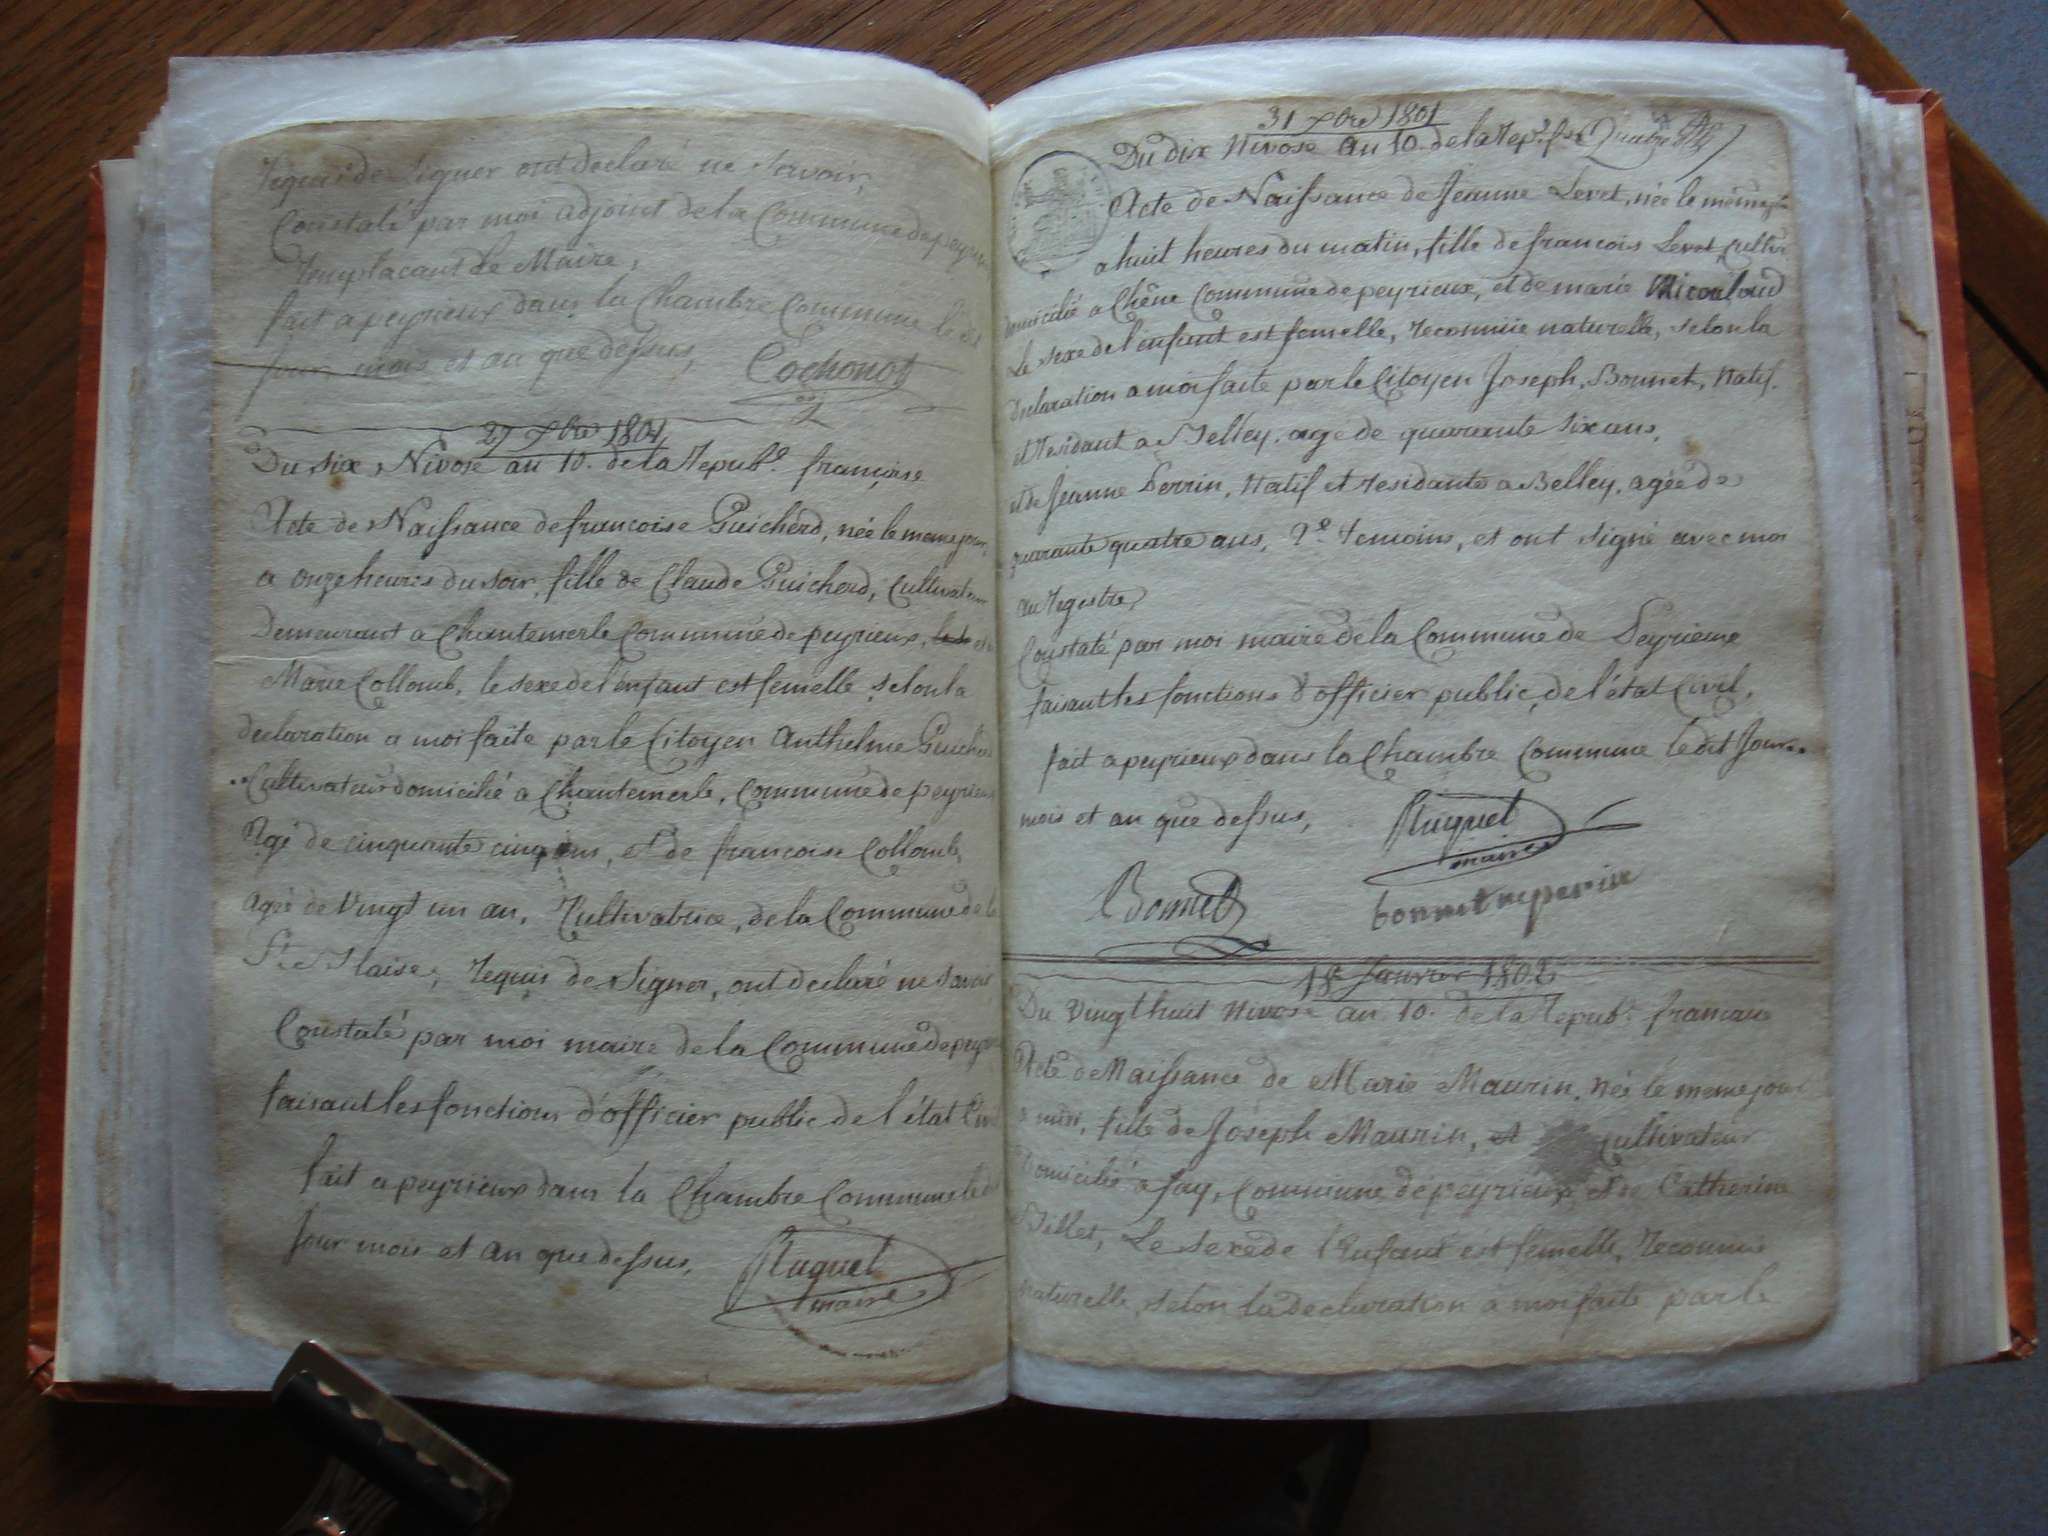 Requis de Signer ont declaré ne Savoir,
Constaté par moi adjoint de la Commune de peyrieux
Remplacant Le Maire,
fait a peyrieux dans la Chambre Commune le dit
Jour, mois et an que dessus, Cochonot
27 xbre 1801
Du Six Nivose an 10. de la Republ. françoise
Acte de Naissance de francoise Guicherd, née le meme jour,
a onze heures du soir, fille de Claude Guicherd, Cultivateur
Demeurant a Chantemerle Commune de peyrieux, et de
Marie Collomb, le sexe de l'enfant est femelle, selon la
declaration a moi faite par le Citoyen Anthelme Guicherd
Cultivateur domicilié a Chantemerle, Commune de peyrieux
Agé de cinquante cinq ans, et de francoise Collomb,
agée de Vingt un an, Cultivatrice, de la Commune de
St. Blaise, Requis de Signer, ont declaré ne Savoir
Constaté par moi maire de la Commune de peyrieux
faisant les fonctions d'officier public de l'état Civil
fait a peyrieux dans la Chambre Commune le dit
Jour mois et an que dessus, Ruquet
maire
31 xbre 1801
Du dix Nivose an 10. de la Rep.
Acte de Naissance de Jeanne Levet, née le même jour
a huit heures du matin, fille de francois Levet, Cultiv
domicilié a Chêne Commune de peyrieux, et de marie Micouloud
Le sexe de l'enfant est femelle, reconnüe naturelle, selon la
declaration a moi faite par le Citoyen Joseph, Bonnet, Natif.
et residant a Belley, agé de quarante six ans,
et de Jeanne Perrin, Natif et residante a Belley, agée de
quarante quatre ans, 2e. temoins, et ont signé avec moi
au registre,
Constaté par moi maire de la Commune de Peyrieux
faisant les fonctions d'officier public, de l'état Civil,
fait a peyrieux dans la Chambre Commune le dit Jour
mois et an que dessus, Ruquet
maire
Bonnet
18 Janvier 1802
Du Vingt huit Nivose an 10. de la Repub. francaise
Acte de Naissance de Marie Maurin, née le meme jour
a midi, fille de Joseph Maurin, et cultivateur
Domicilié a fay, Commune de peyrieux, et de Catherine
Billet, Le sexe de l'Enfant est femelle, reconnüe
naturelle, selon la declaration a moi faite par le